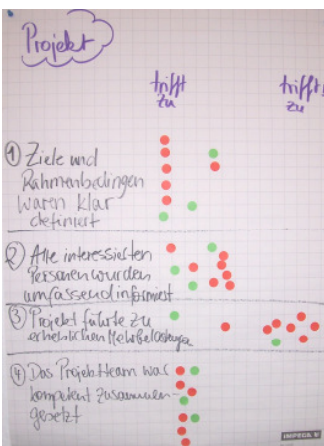 Projekt
trifft zu
trifft zu
① Ziele und
Rahmenbedingen
waren klar
definiert
② Alle interessierten
Personen wurden
umfassend informiert
③ Projekt führte zu
erheblichen Mehrbelastungen
④ Das Projektteam war
kompetent zusammen-
gesetzt
IMPEGA